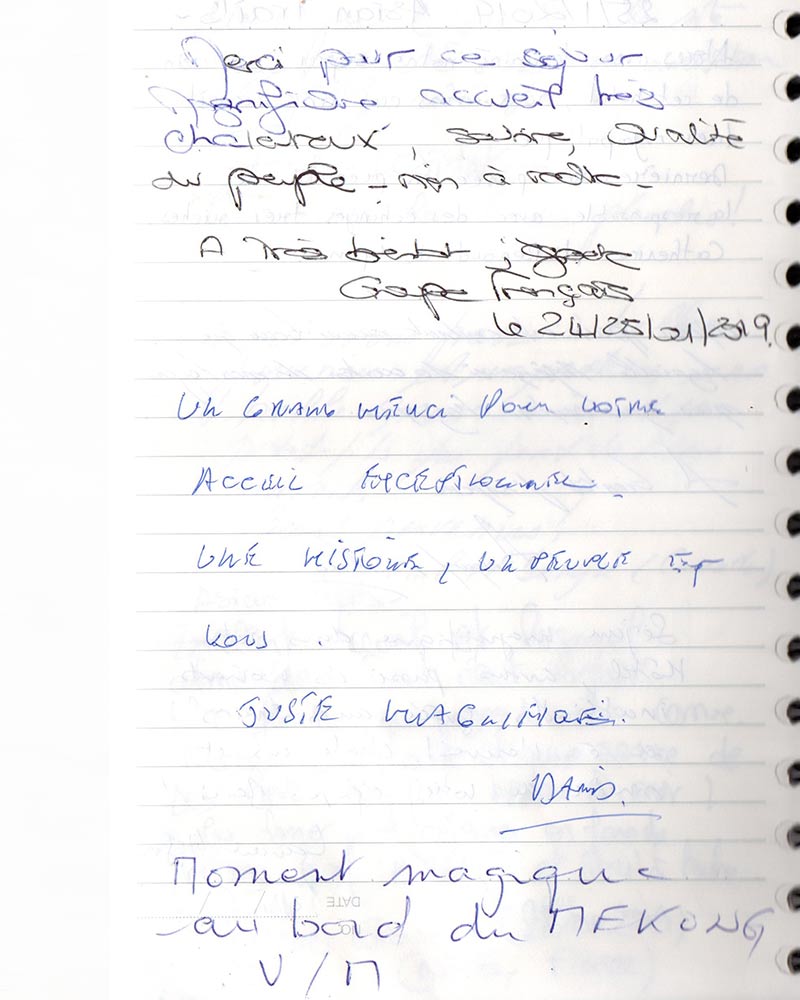 Merci pour ce séjour
Magnifique accueil très
chaleureux, sourire, qualité
du peuple - rien à redire -
A Très bientôt,
Groupe Français
le 24/25/01/2019.
UN GRAND MERCI POUR VOTRE
ACCEUIL EXCEPTIONNEL.
UNE HISTOIRE, UN PEUPLE ET
VOUS.
JUSTE MAGNIFIQUE.
Moment magique
au bord du MEKONG
V/M